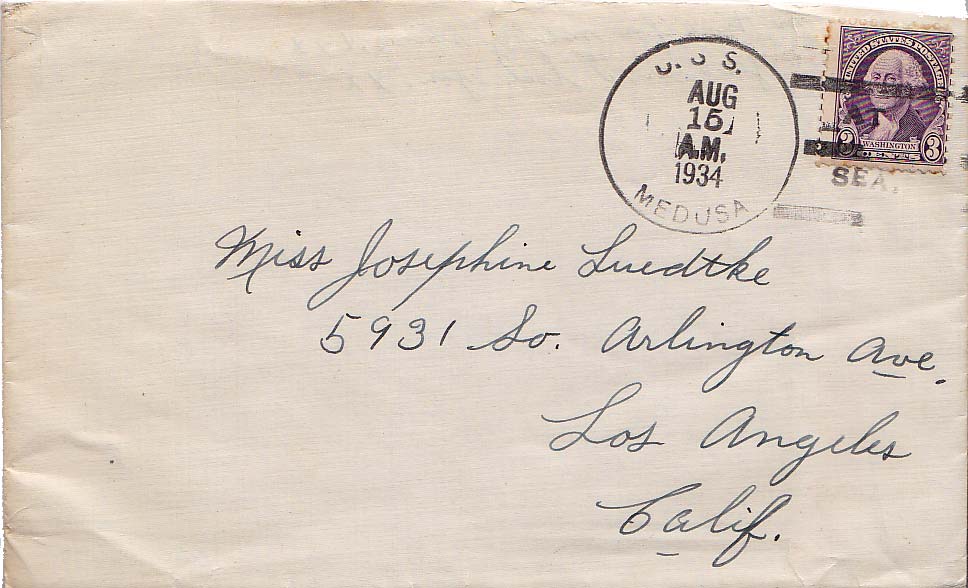 U.S.S.
AUG
15
A.M.
1934
MEDUSA
UNITED STATES POSTAGE
WASHINGTON
3 CENTS 3
AT
SEA.
Miss Josephine Luedtke
5931 So. Arlington Ave.
Los Angeles
Calif.